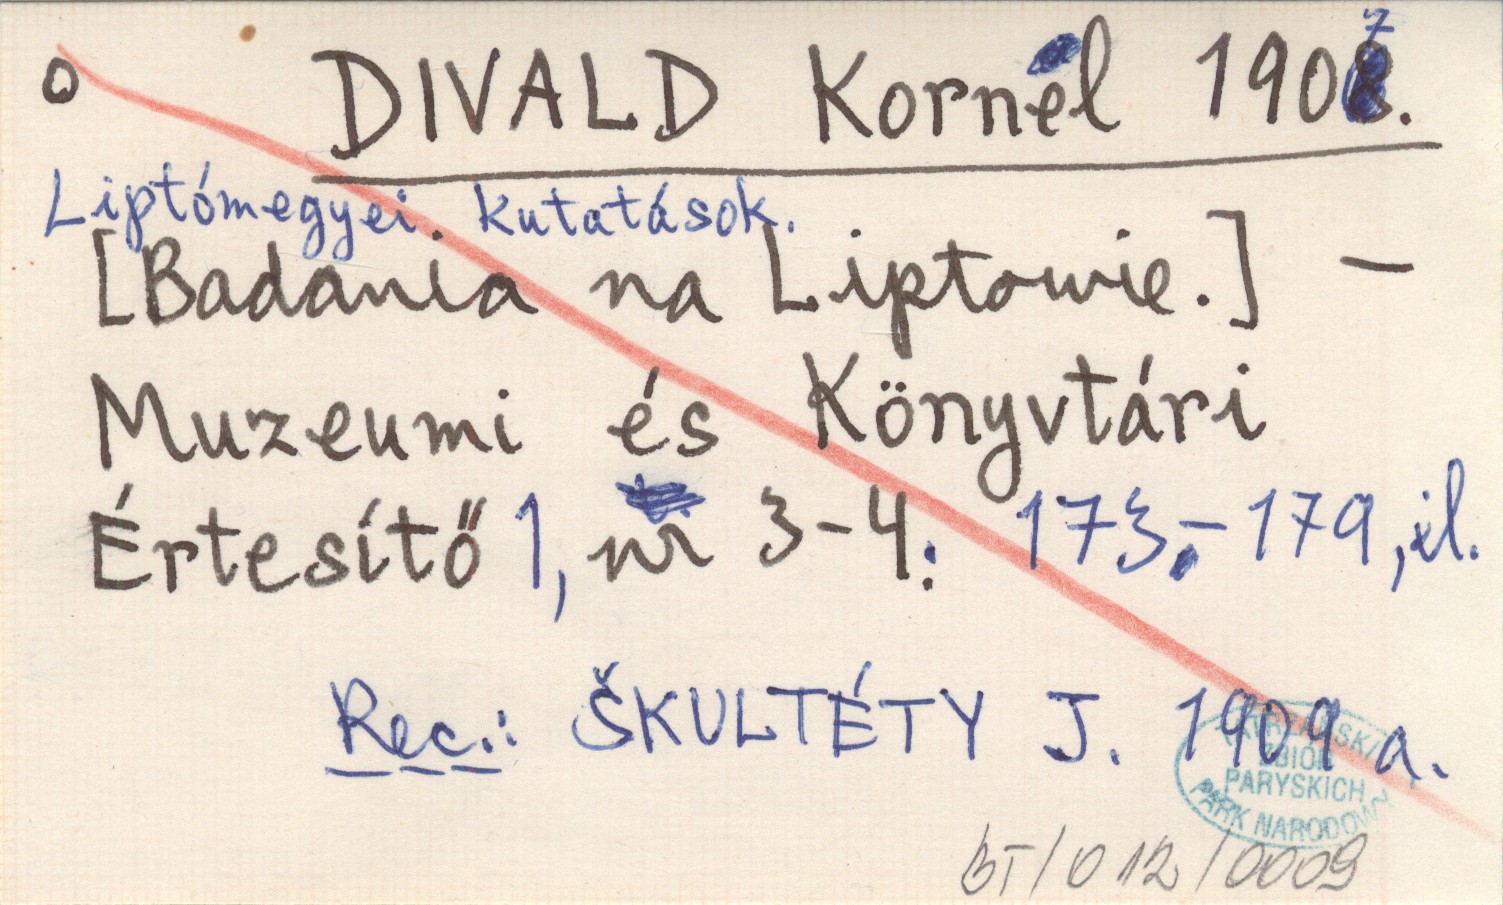 DIVALD Kornel 1907.
Liptómegyei kutatások.
[Badania na Liptowie.] –
Muzeumi és Könyvtári
Értesítő 1, nr 3-4: 173-179, il.
Rec.: ŠKULTÉTY J. 1909 a.
TATRZAŃSKI
ZBIÓR
PARYSKICH
PARK NARODOWY
BT/012/0009